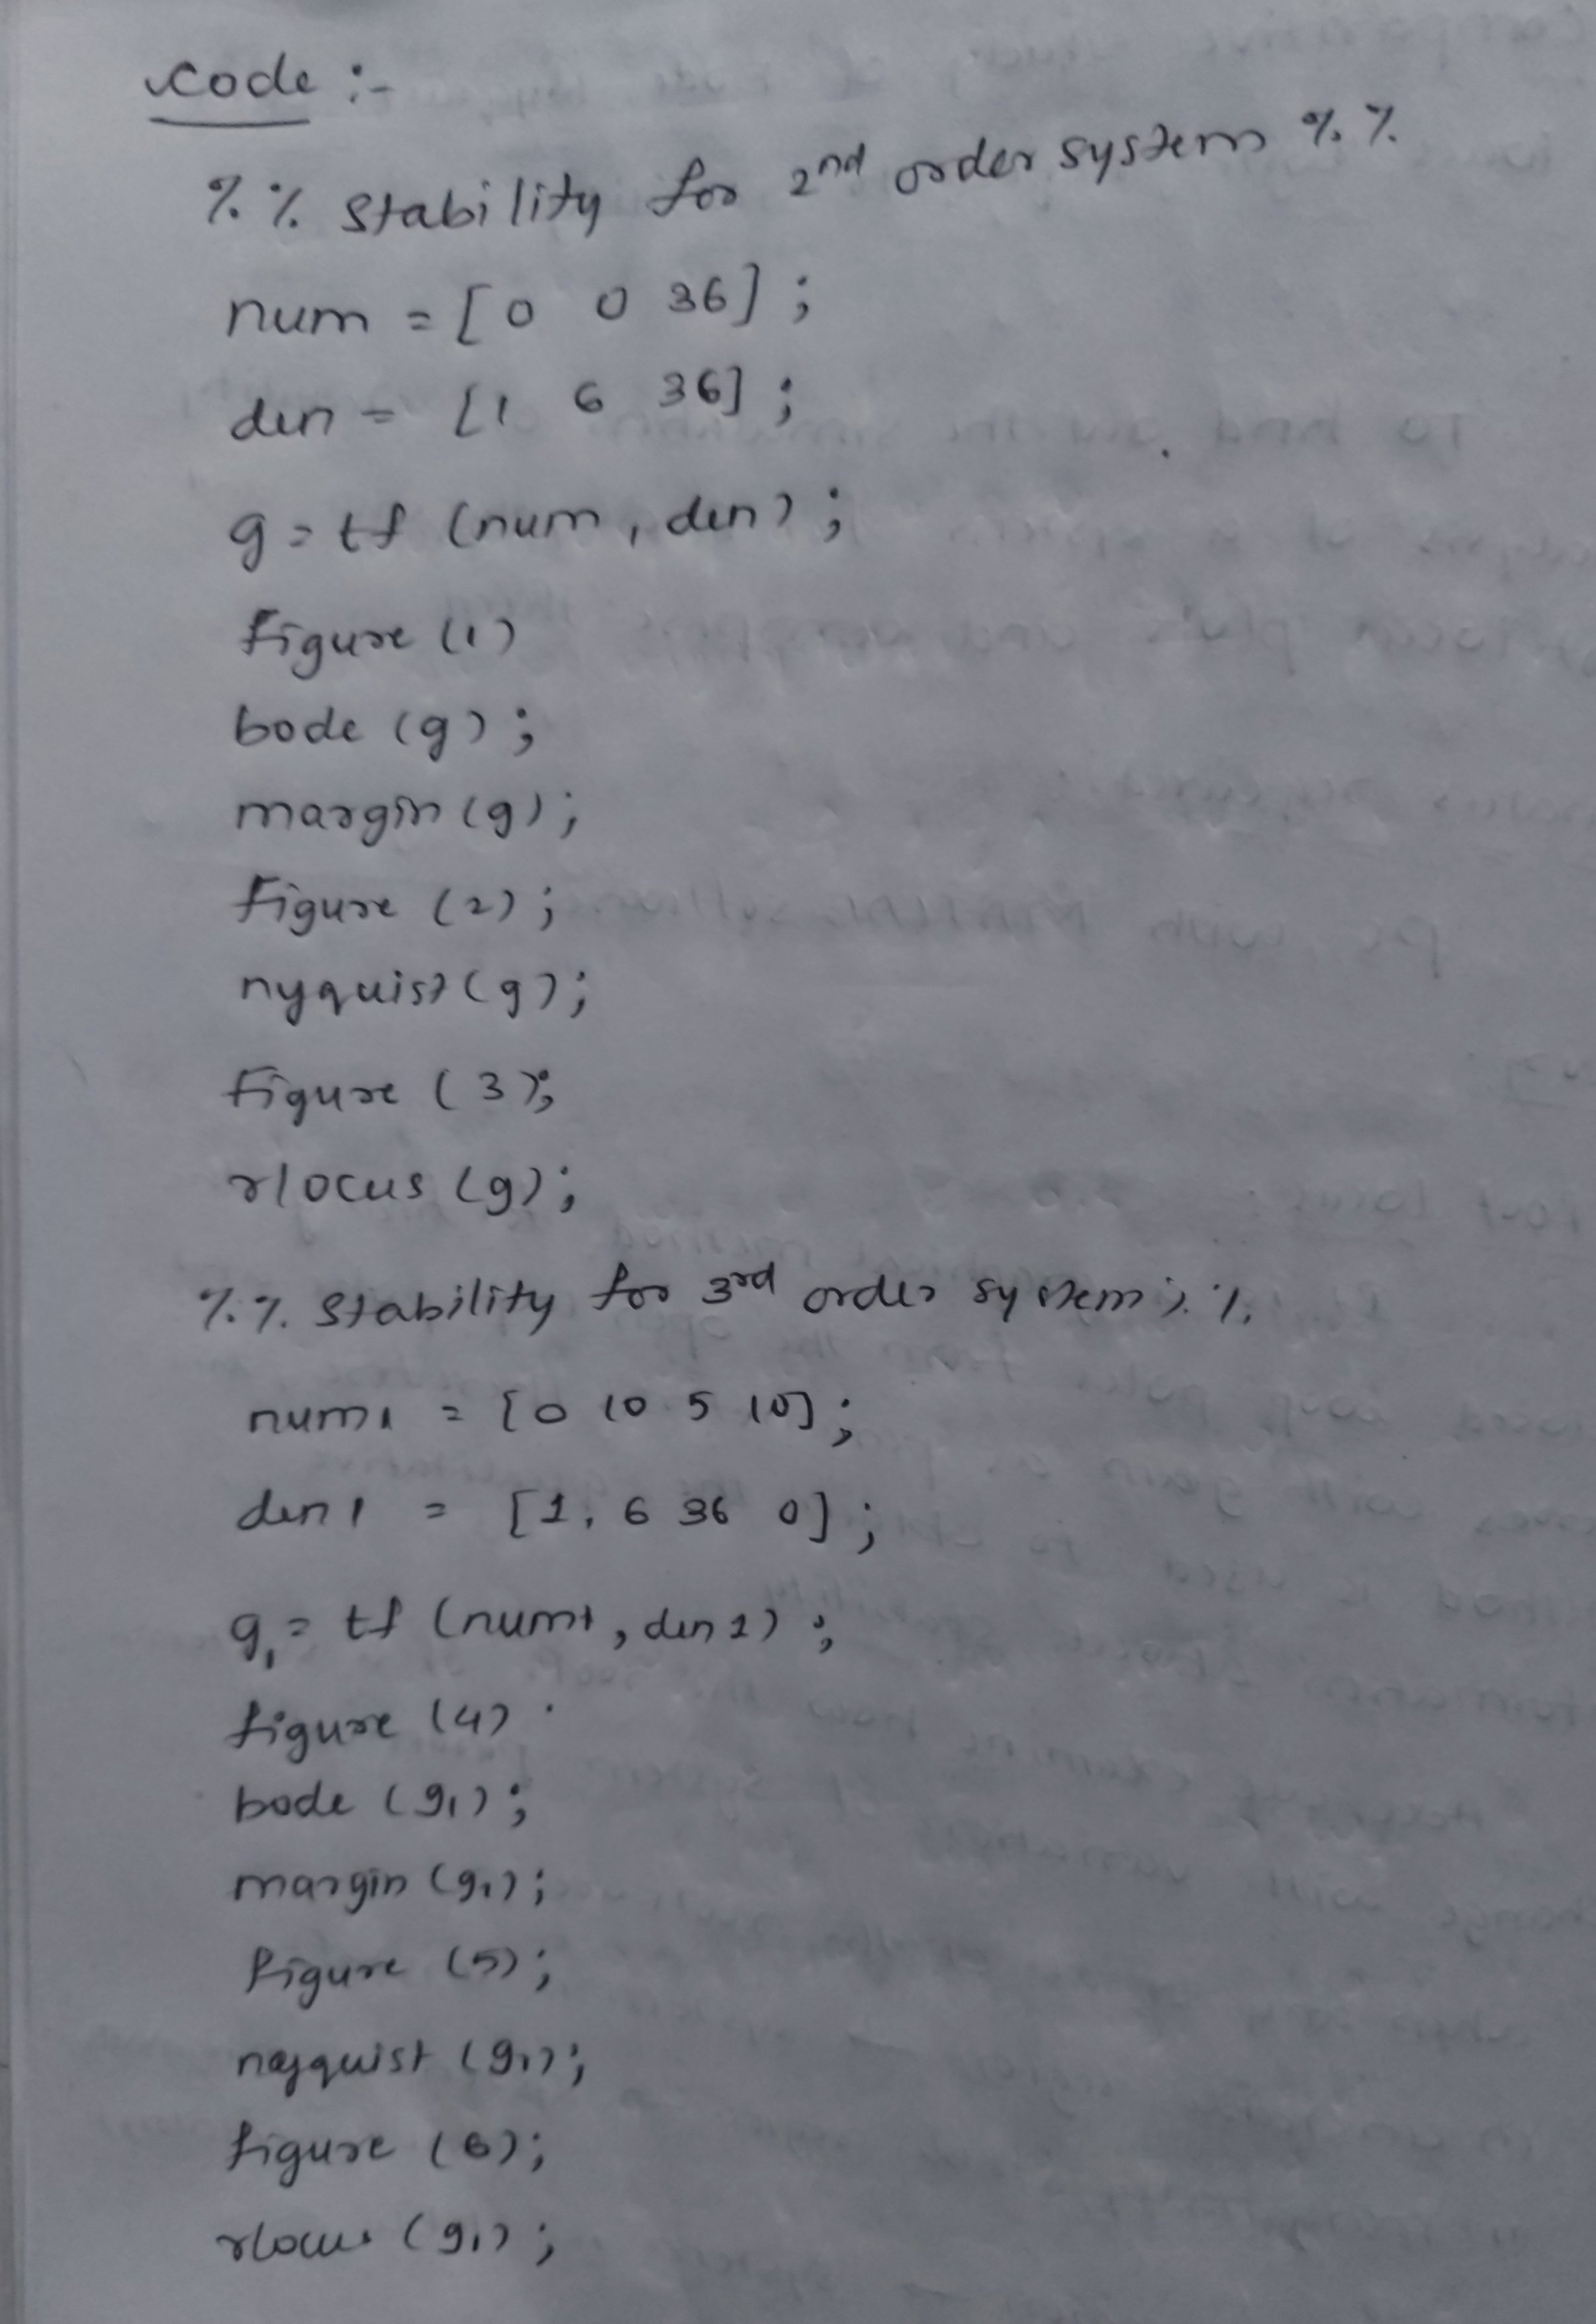 Code :-
%% Stability for 2nd order system %%
num = [0 0 36];
den = [1 6 36];
g = tf (num, den);
figure (1)
bode (g);
margin (g);
figure (2);
nyquist (g);
figure (3);
rlocus (g);
%% Stability for 3rd order system %%
num1 = [0 10 5 10];
den1 = [1, 6 36 0];
g1 = tf (num1, den1);
figure (4)
bode (g1);
margin (g1);
figure (5);
nyquist (g1);
figure (6);
rlocus (g1);